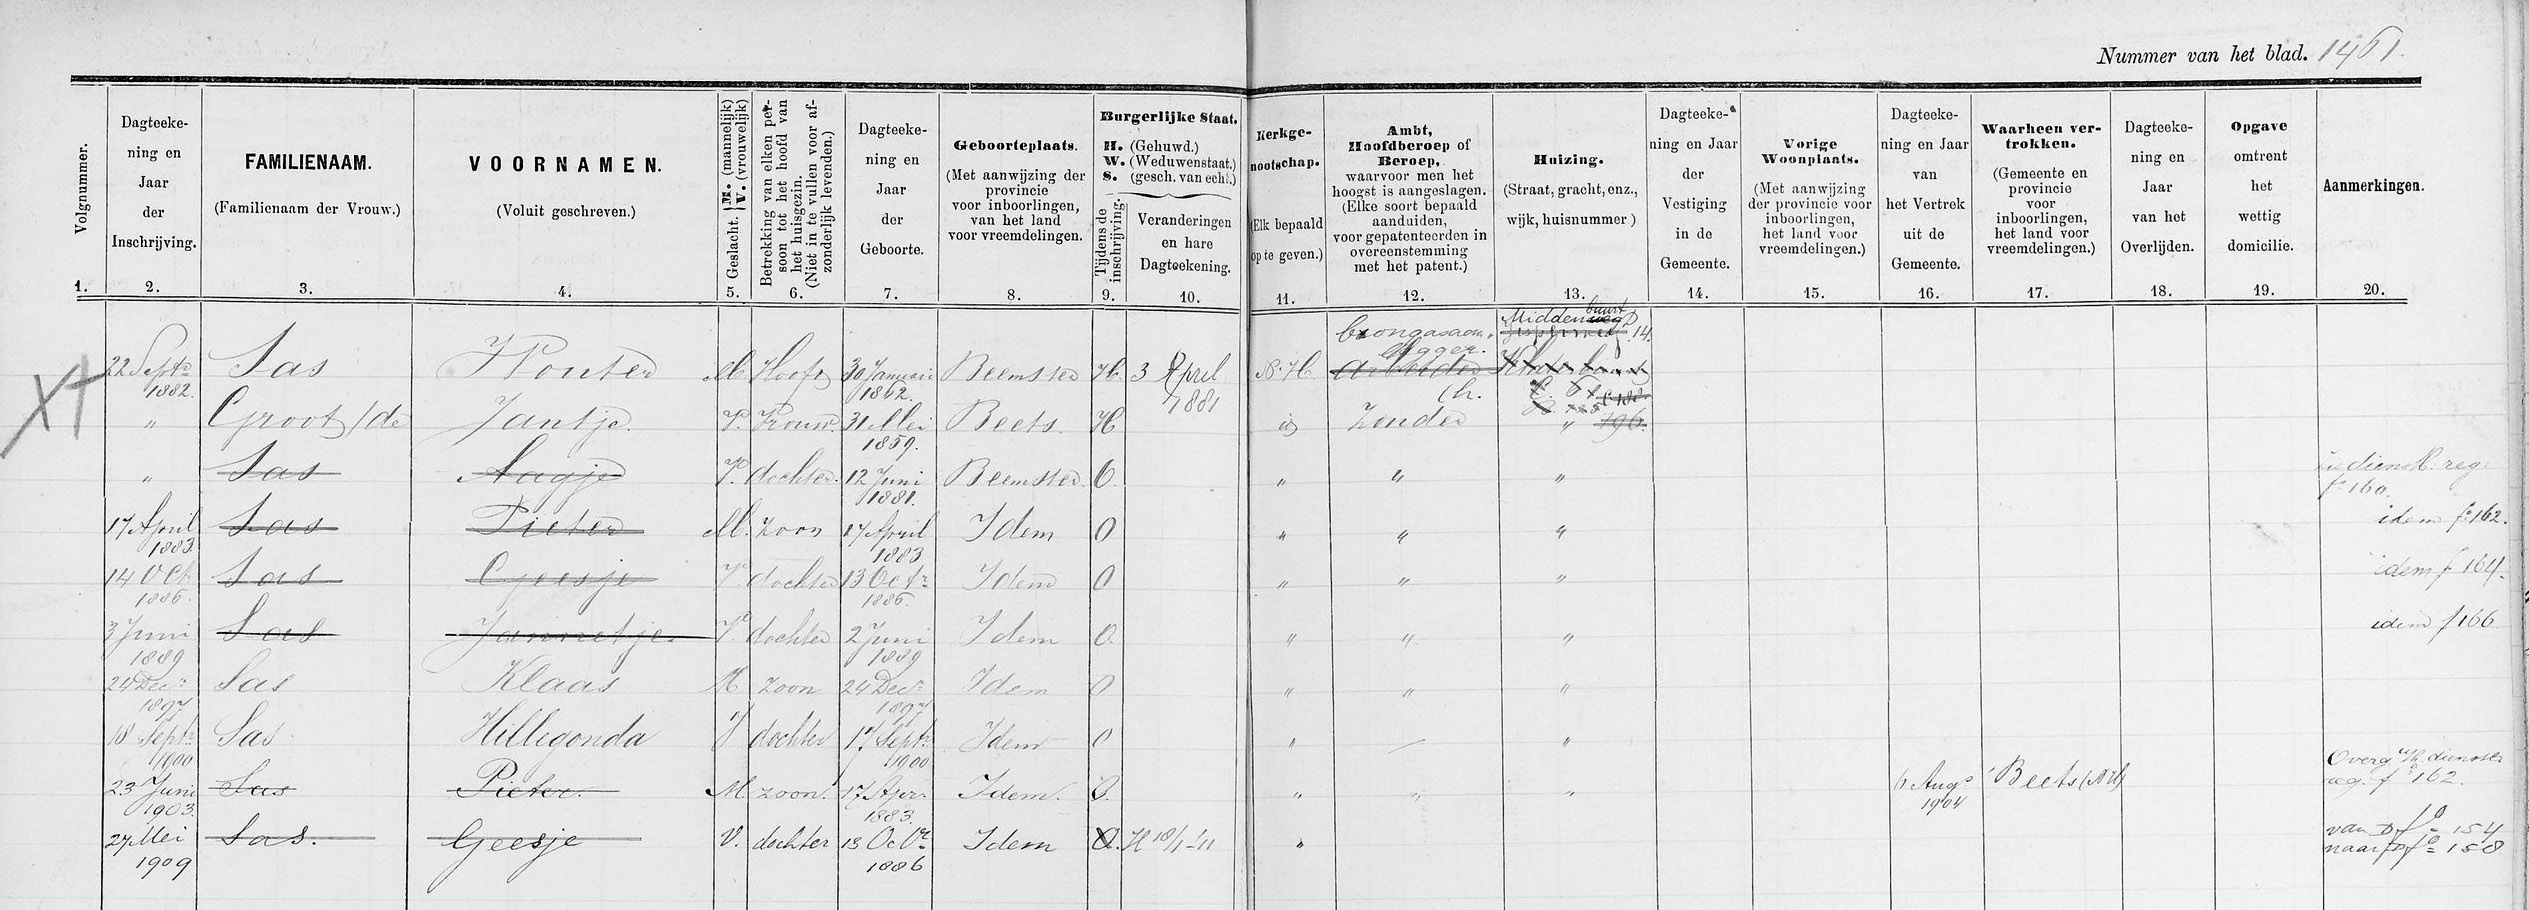 Nummer van het blad. 1461.
Volgnummer. 1.
Dagteekening en Jaar der Inschrijving. 2.
FAMILIENAAM. (Familienaam der Vrouw.) 3.
VOORNAMEN. (Voluit geschreven.) 4.
Geslacht. M. (mannelijk) V. (vrouwelijk) 5.
Betrekking van elken persoon tot het hoofd van het huisgezin. (Niet in te vullen voor afzonderlijk levenden.) 6.
Dagteekening en Jaar der Geboorte. 7.
Geboorteplaats. (Met aanwijzing der provincie voor inboorlingen, van het land voor vreemdelingen.) 8.
Burgerlijke Staat. H. (Gehuwd.) W. (Weduwenstaat.) S. (gesch. van echt.)
Tijdens de inschrijving. 9.
Veranderingen en hare Dagteekening. 10.
Kerkgenootschap. (Elk bepaald op te geven.) 11.
Ambt, Hoofdberoep of Beroep, waarvoor men het hoogst is aangeslagen. (Elke soort bepaald aanduiden, voor gepatenteerden in overeenstemming met het patent.) 12.
Huizing. (Straat, gracht, enz., wijk, huisnummer) 13.
Dagteekening en Jaar der Vestiging in de Gemeente. 14.
Vorige Woonplaats. (Met aanwijzing der provincie voor inboorlingen, het land voor vreemdelingen.) 15.
Dagteekening en Jaar van het Vertrek uit de Gemeente. 16.
Waarheen vertrokken. (Gemeente en provincie voor inboorlingen, het land voor vreemdelingen.) 17.
Dagteekening en Jaar van het Overlijden. 18.
Opgave omtrent het wettig domicilie. 19.
Aanmerkingen. 20.
Middenbuurt D 14.
22 Septr 1882. Sas Wouter M. Hoofd 30 Januari 1862. Beemster H. 3 April 1881 N. H. Arbeider
" Groot / de Jantje. V. Vrouw. 31 Mei 1859. Beets. H id Zonder " 196.
" Sas Aagje V. dochter. 12 Juni 1881. Beemster. O. " " " dienstb. reg. f 160.
17 April 1883. Sas Pieter M. zoon 17 April 1883 Idem O " " " idem fo 162.
14 Oct. 1886. Sas Geesje V. dochter 13 Octr 1886. Idem O " " " idem f 164.
3 Juni 1889 Sas Jannetje V. dochter 2 Juni 1889 Idem O. " " " idem f 166
24 Decr 1897 Sas Klaas M zoon 24 Decr 1897 Idem O " " "
18 Septr 1900 Sas Hillegonda V dochter 17 Septr 1900 Idem O " "
23 Juni 1903. Sas Pieter. M. zoon. 17 Apr. 1883. Idem. O. " " " 6 Augs 1904 Beets (N.H) Overg uit dienstb. reg. f 162.
27 Mei 1909 Sas. Geesje V. dochter 13 Octr 1886 Idem O. H 18/1-'11 " van D fo 154
naar D fo 158